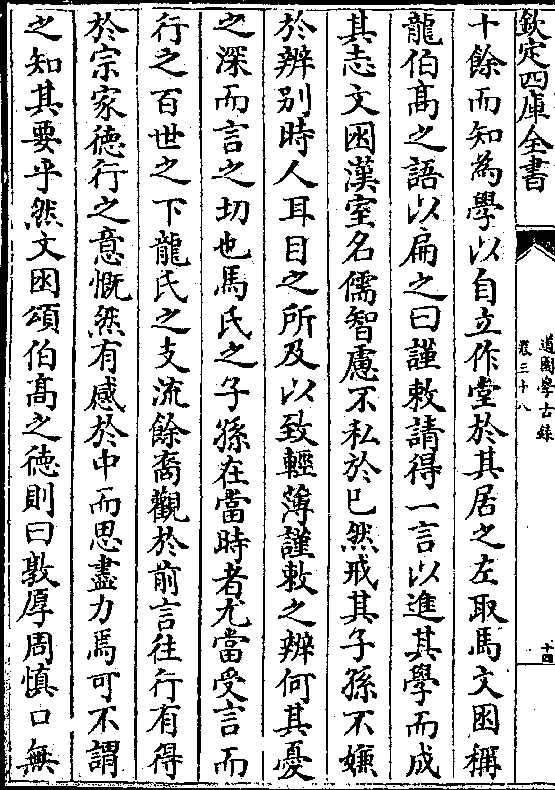 欽定四庫全書
道園學古錄
卷三十八
十四
十餘而知為學以自立作堂於其居之左取馬文困稱
龍伯髙之語以扁之曰謹敕請得一言以進其學而成
其志文困漢室名儒智慮不私於已然戒其子孫不嫌
於辨别時人耳目之所及以致輕薄謹敕之辨何其憂
之深而言之切也馬氏之子孫在當時者尤當受言而
行之百世之下龍氏之支流餘裔觀於前言往行有得
於宗家徳行之意慨然有感於中而思盡力焉可不謂
之知其要乎然文困頌伯髙之徳則曰敦厚周慎口無